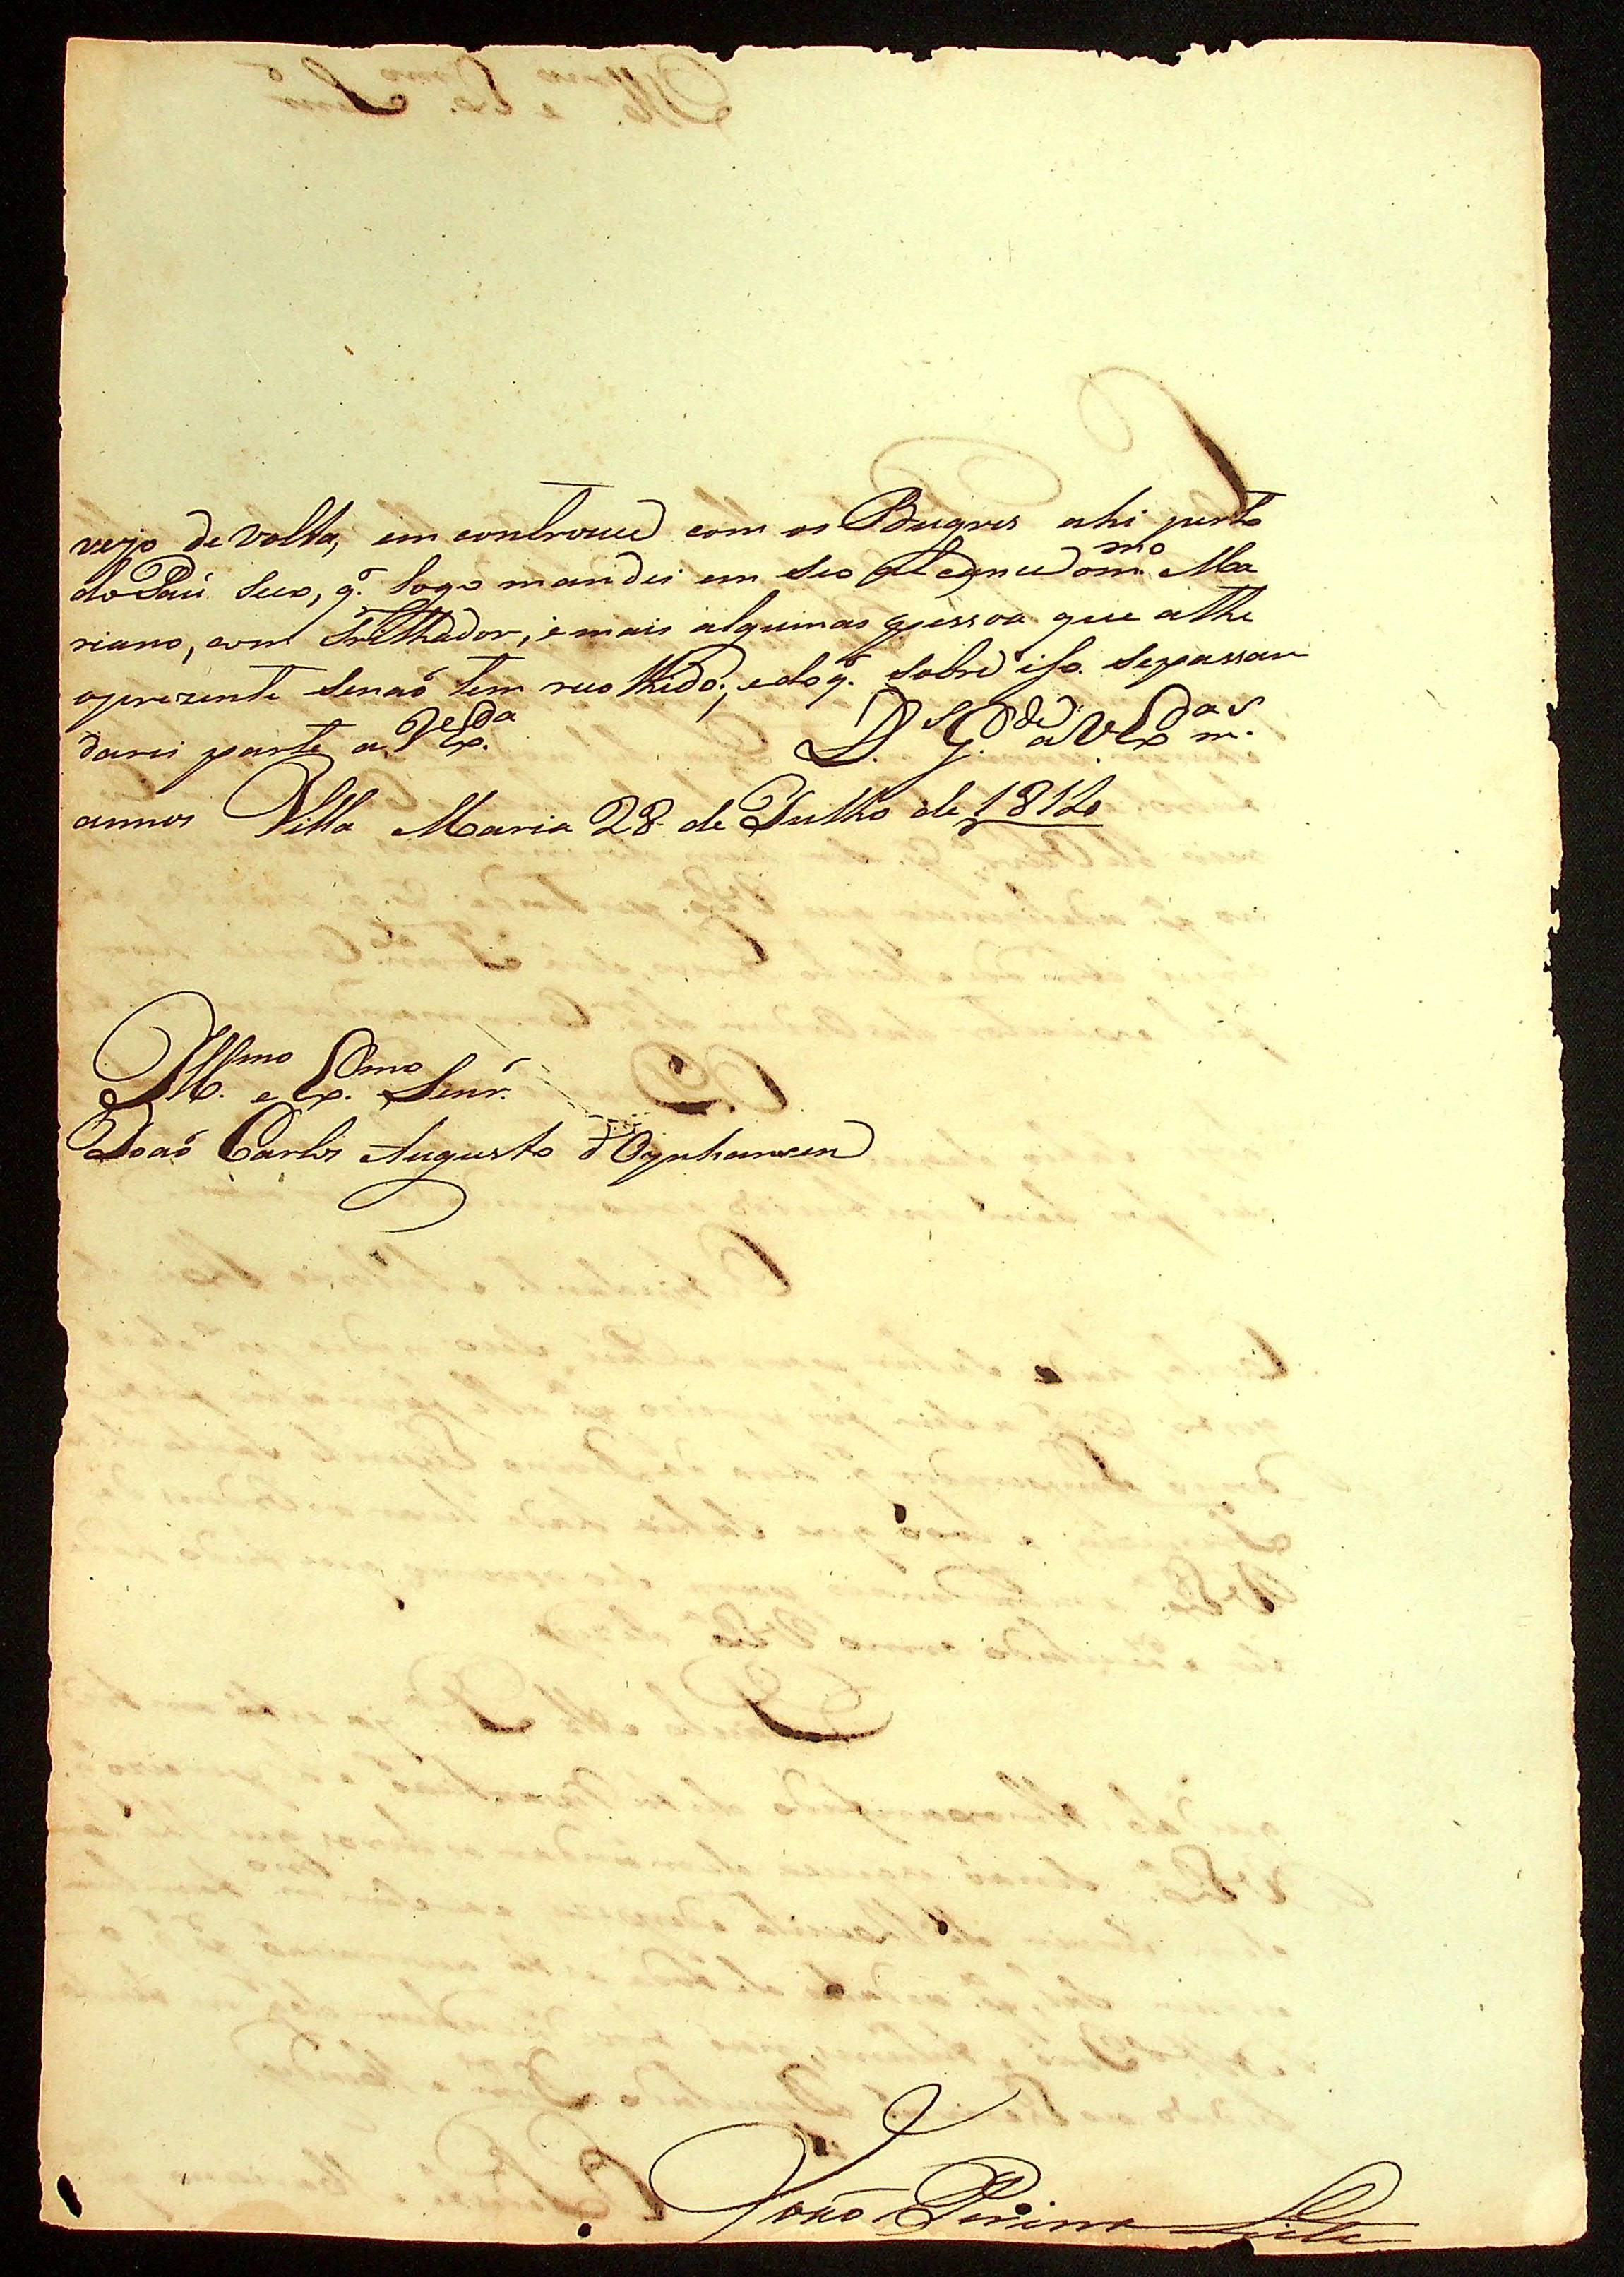 vejo de volta, em controuce com os Bugres ahi perto
do Paú Seco, q. logo mandei em seo alcance o mmo. Ma
riano, com Trilhador, e mais algumas pessoa que athe
oprezente senaõ tem recolhido; e do q. sobre isso sepassar
darei parte a VExda. Ds. Gde. a VExda. ms.
annos Villa Maria 28 de Julho de
Illmo. e Exmo. Senr.
Joaõ Carlos Augusto d'Oynhausen
João Pereira Leite